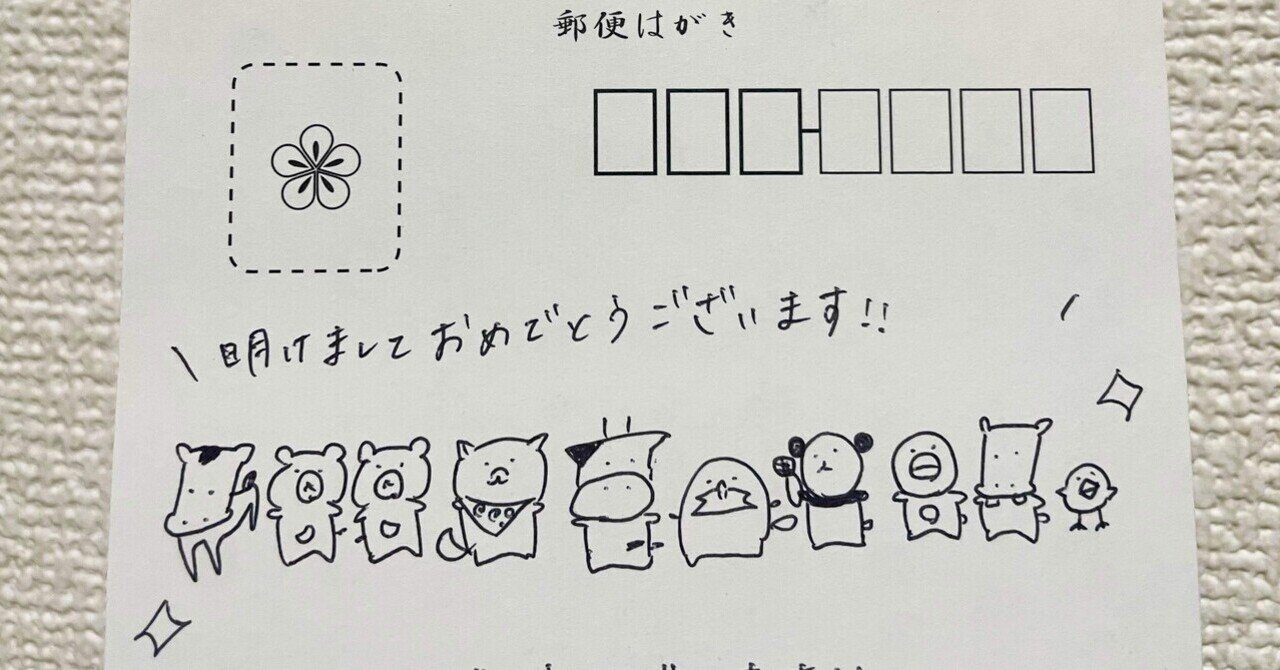 郵便はがき
明けましておめでとうございます!!